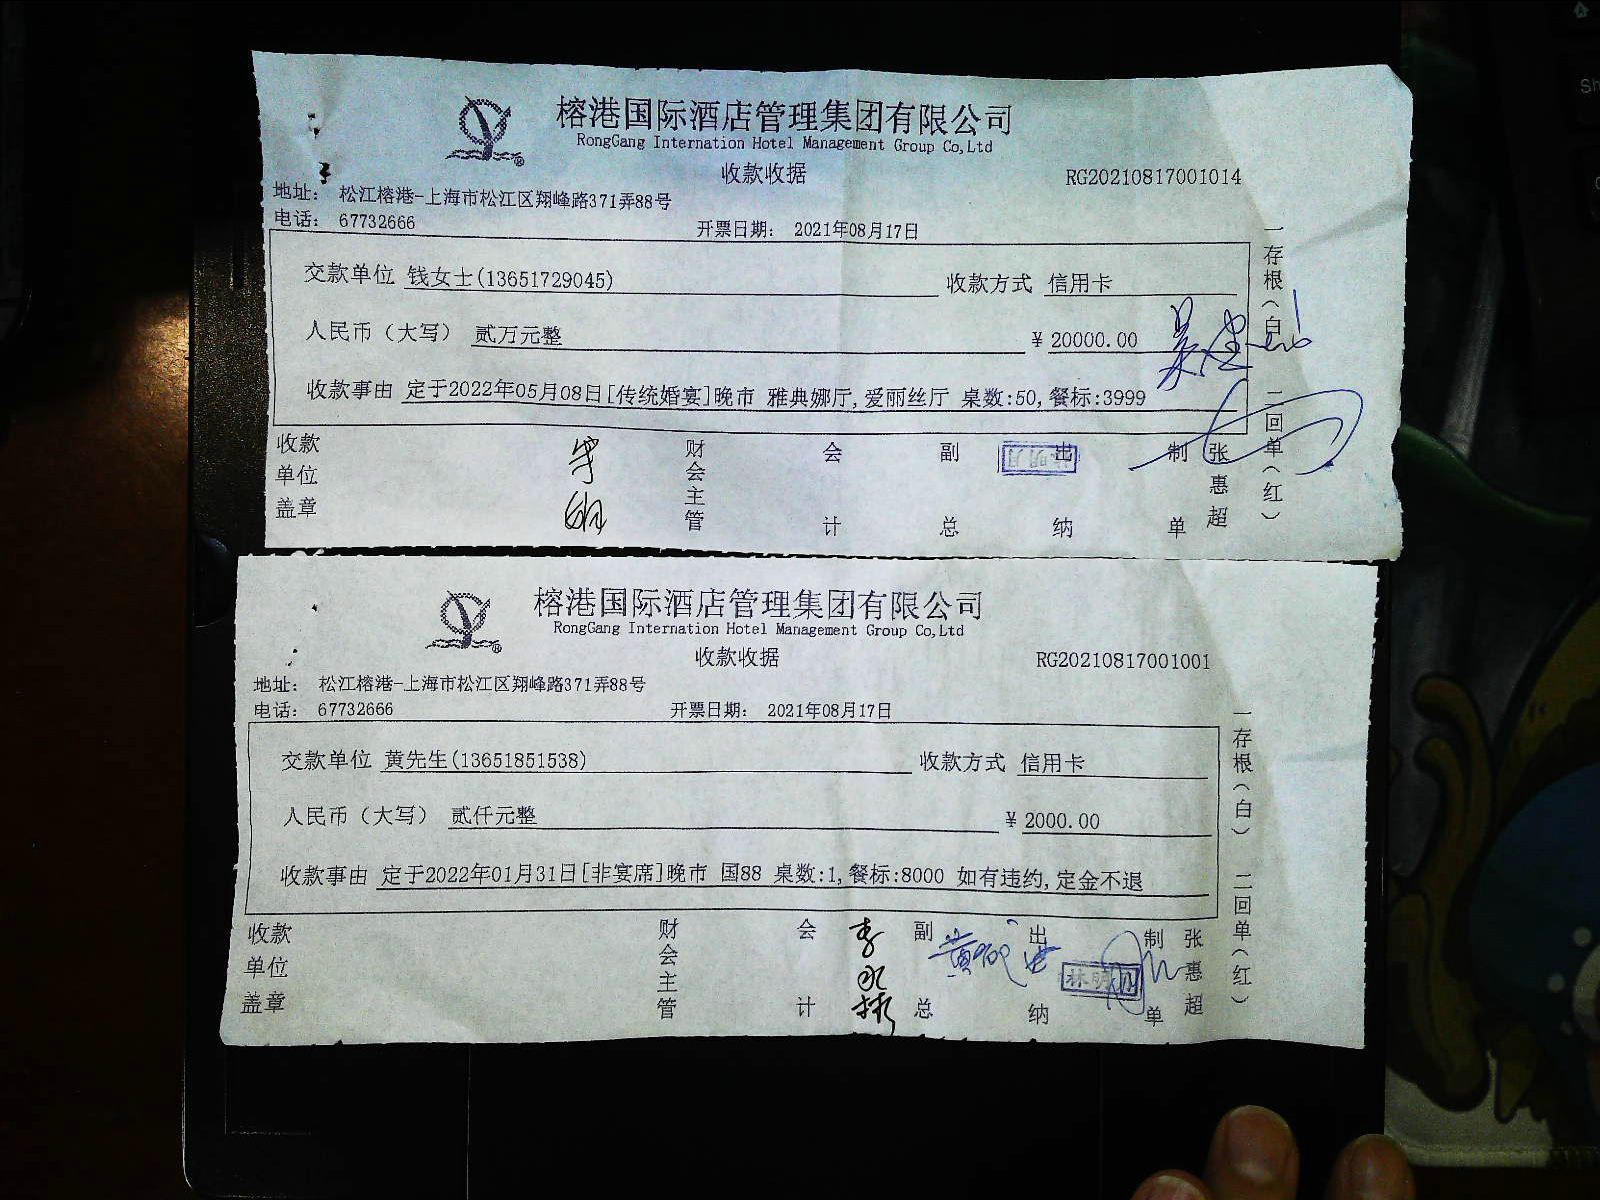 榕港国际酒店管理集团有限公司
RongGang Internation Hotel Management Group Co,Ltd
收款收据 RG20210817001014
地址: 松江榕港-上海市松江区翔峰路371弄88号
电话: 67732666 开票日期: 2021年08月17日
交款单位 钱女士(13651729045) 收款方式 信用卡
人民币（大写） 贰万元整 ¥ 20000.00
收款事由 定于2022年05月08日[传统婚宴]晚市 雅典娜厅,爱丽丝厅 桌数:50,餐标:3999
收款单位盖章 财会主管 会计 副总 出纳 制单 张惠超
一存根（白） 二回单（红）
榕港国际酒店管理集团有限公司
RongGang Internation Hotel Management Group Co,Ltd
收款收据 RG20210817001001
地址: 松江榕港-上海市松江区翔峰路371弄88号
电话: 67732666 开票日期: 2021年08月17日
交款单位 黄先生(13651851538) 收款方式 信用卡
人民币（大写） 贰仟元整 ¥ 2000.00
收款事由 定于2022年01月31日[非宴席]晚市 国88 桌数:1,餐标:8000 如有违约,定金不退
收款单位盖章 财会主管 会计 副总 出纳 制单 张惠超
一存根（白） 二回单（红）